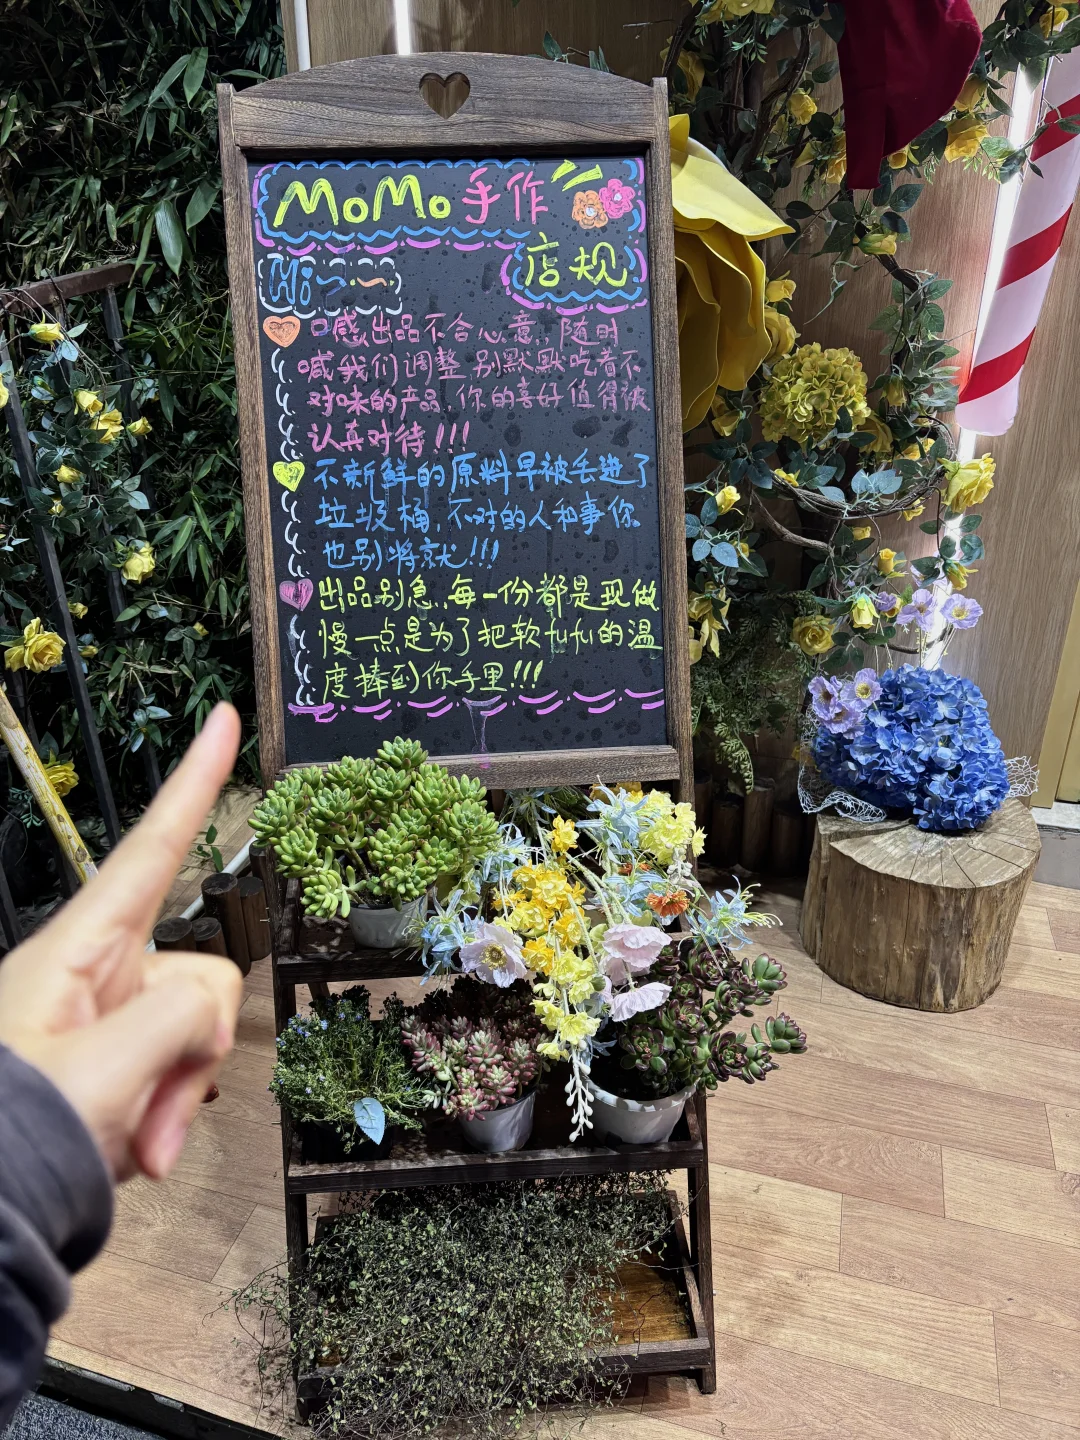 MoMo手作
店规
Hi~~
口感出品不合心意,,随时
喊我们调整 别默默吃着不
对味的产品,你的喜好值得被
认真对待!!!
不新鲜的原料早被丢进了
垃圾桶,不对的人和事你
也别将就!!!
出品别急,,每一份都是现做
慢一点是为了把软fufu的温
度捧到你手里!!!